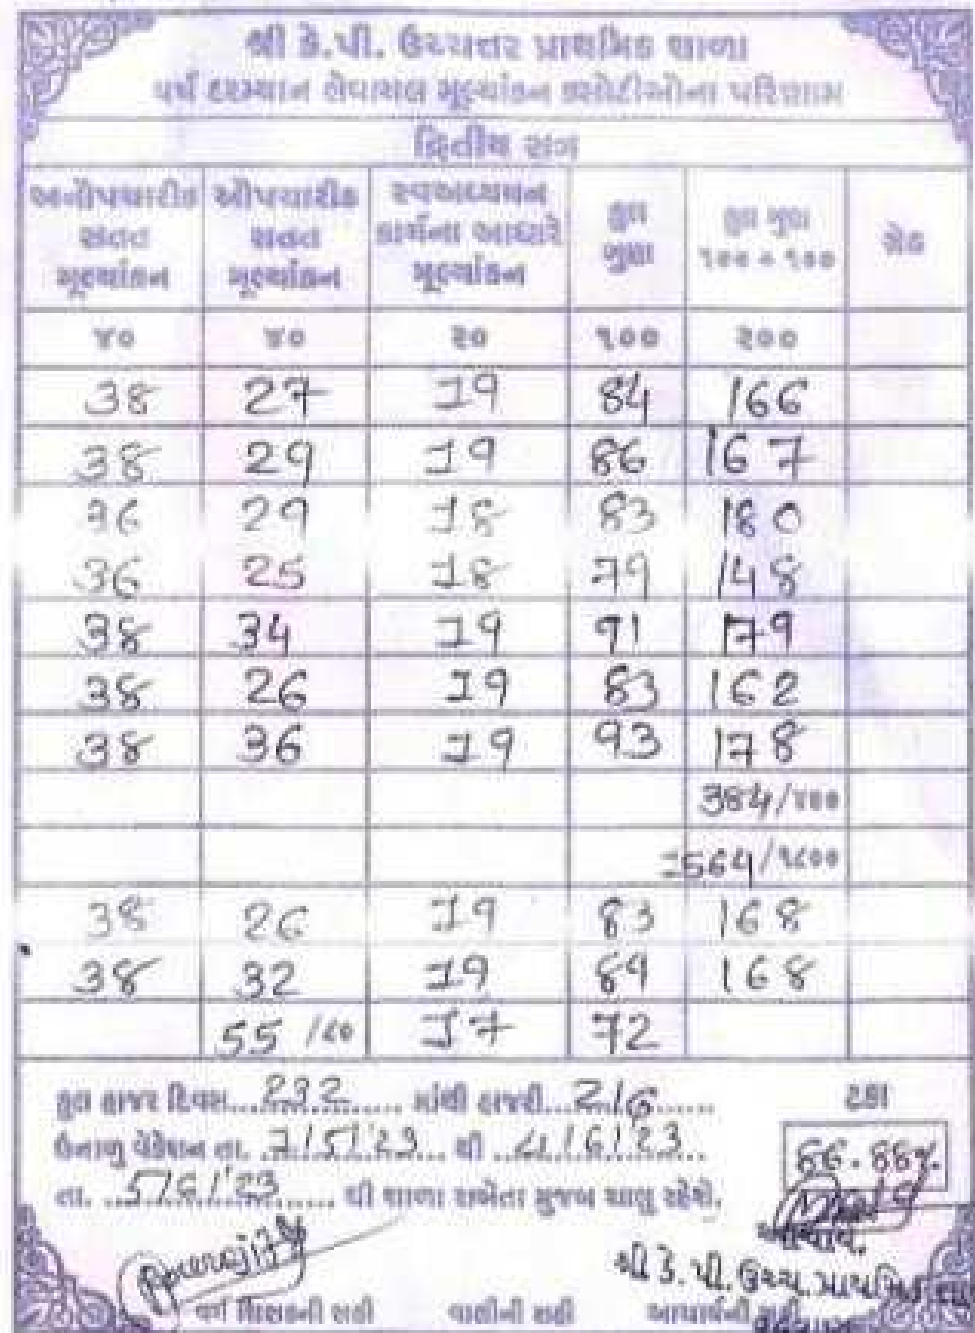 શ્રી કે.પી. ઉચ્ચત્તર પ્રાથમિક શાળા
વર્ષ દરમ્યાન લેવાયેલ મૂલ્યાંકન કસોટીઓના પરિણામ
દ્વિતીય સત્ર
અનૌપચારીક સતત મૂલ્યાંકન ઔપચારીક સતત મૂલ્યાંકન સ્વઅધ્યયન કાર્યના આધારે મૂલ્યાંકન કુલ ગુણ કુલ ગુણ ૧૦૦ + ૧૦૦ ગ્રેડ
૪૦ ૪૦ ૨૦ ૧૦૦ ૨૦૦
38 27 19 84 166
38 29 19 86 167
36 29 18 83 180
36 25 18 79 148
38 34 19 91 179
38 26 19 83 162
38 36 19 93 178
384/૪૦૦
1564/૧૮૦૦
38 26 19 83 168
38 32 19 89 168
55 /૮૦ 17 72
કુલ હાજર દિવસ... 232 ... માંથી હાજરી... 216 ... ટકા
ઉનાળુ વેકેશન તા. 7/5/'23 થી 4/6/'23 86.88%
તા. 5/6/'23 થી શાળા રાબેતા મુજબ ચાલુ રહેશે.
આચાર્ય.
શ્રી કે. પી. ઉચ્ચ. પ્રાથમિક
વર્ગ શિક્ષકની સહી વાલીની સહી આચાર્યની સહી